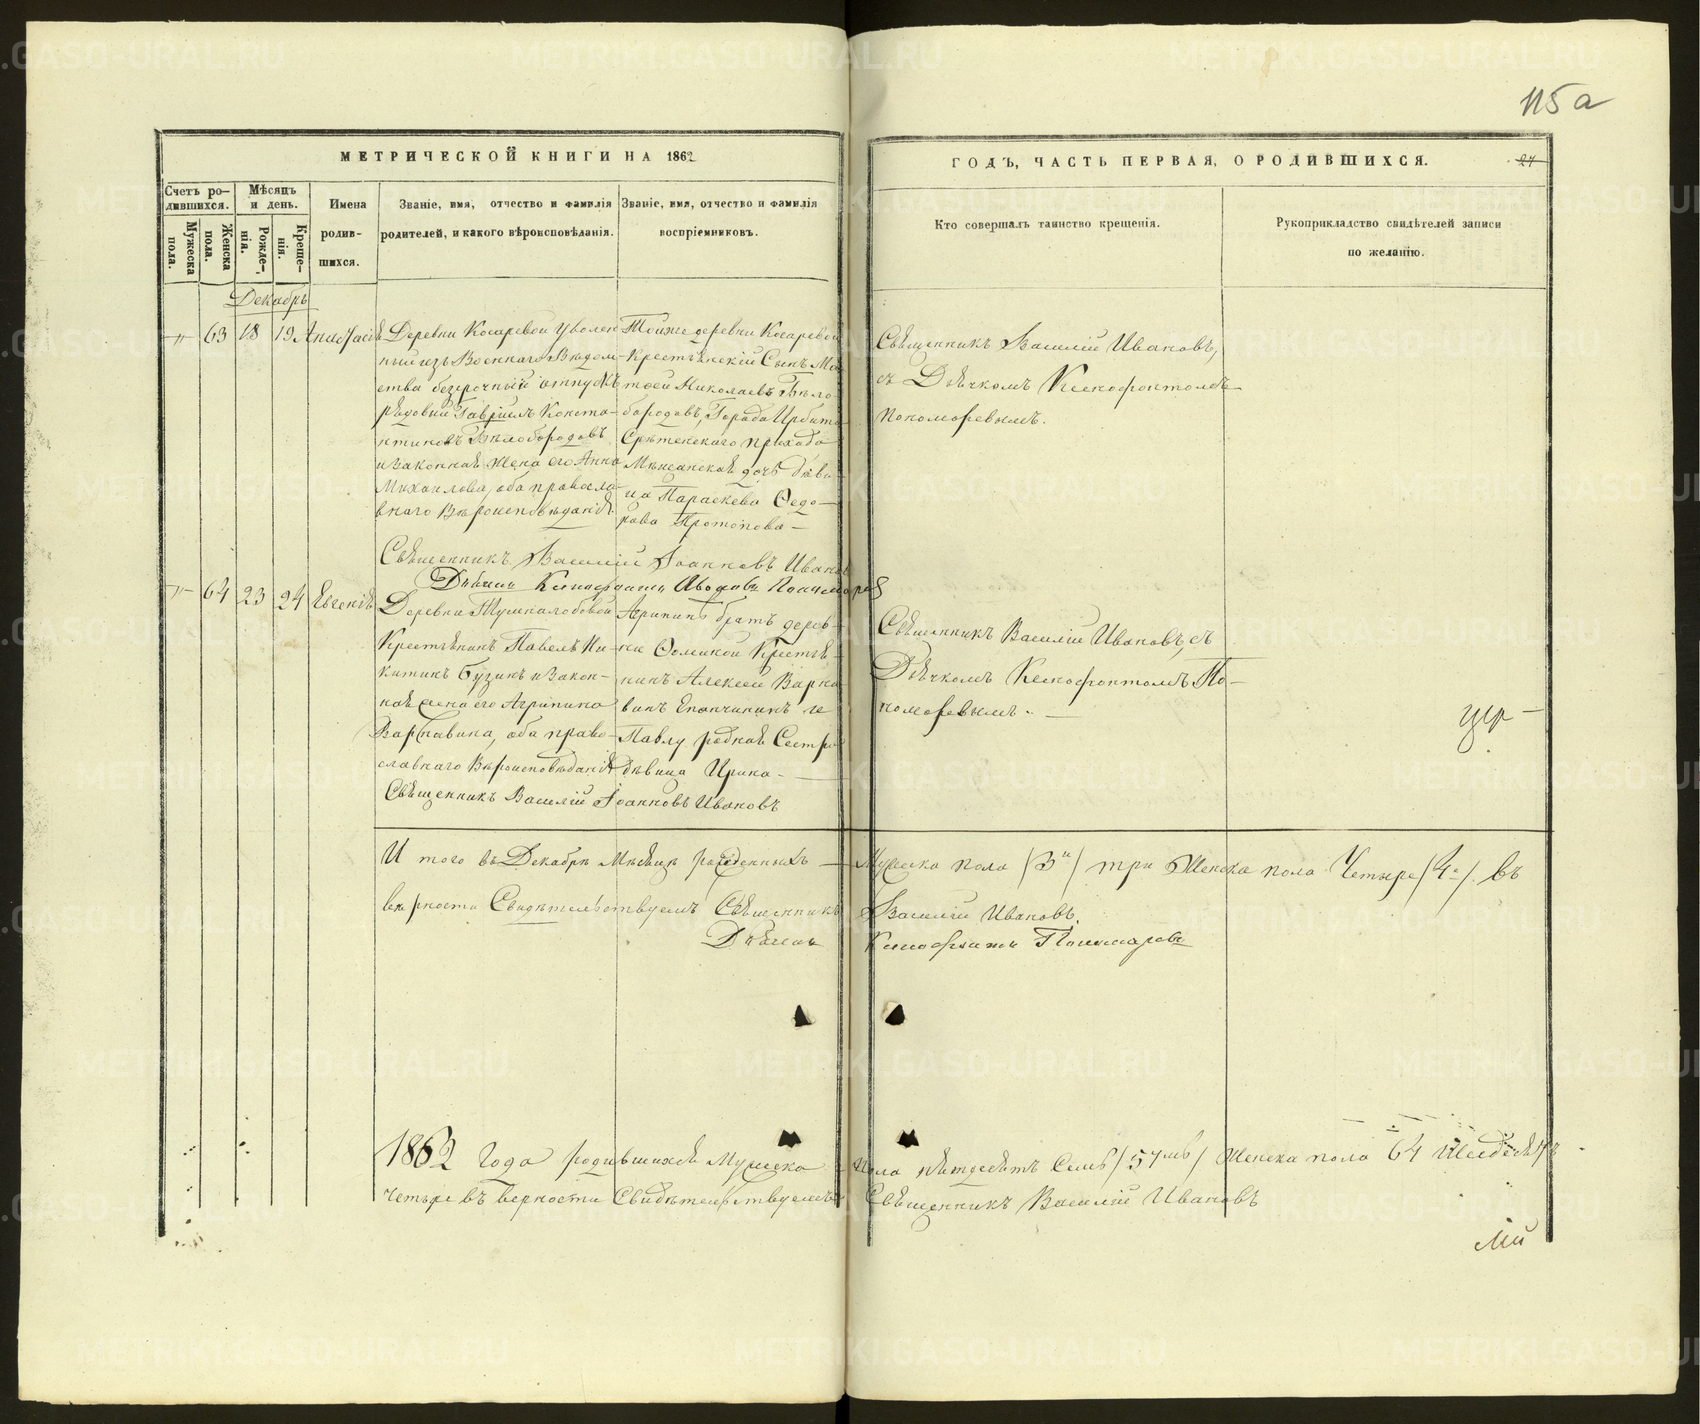 115а
МЕТРИЧЕСКОЙ КНИГИ НА 1862
ГОДЪ, ЧАСТЬ ПЕРВАЯ, О РОДИВШИХСЯ.
27
Счетъ ро-
дившихся.
Мужеска
пола.
Женска
пола.
Мѣсяцъ
и день.
Рожде-
нія.
Креще-
нія.
Имена
родив-
шихся.
Званіе, имя, отчество и фамилія
родителей, и какого вѣроисповѣданія.
Званіе, имя, отчество и фамилія
воспріемниковъ.
Кто совершалъ таинство крещенія.
Рукоприкладство свидѣтелей записи
по желанію.
Декабрь
63 18 19 Анастасія
Деревни Косаревой Уволен
ный изъ Военнаго Вѣдом-
ства безсрочный отпускъ
рядовый Гавріилъ Конста-
нтиновъ Бѣлобородовъ
и Законная Жена его Анна
Михаилова, оба правосла-
внаго Вѣроисповѣданія
Тойже деревни Косаревой
Крестьянскій Сынъ Ма
твей Николаевъ Бѣло
бородовъ, Города Ирбита
Срѣтенскаго прихода
Мѣщанская дочь дѣви
ца Параскева Ѳедо-
рова Протопова
Священникъ Василій Ивановъ,
съ Дьячкомъ Ксенофонтомъ
Пономаревымъ.
Священникъ Василій Іоанновъ Ивановъ
Дьячекъ Ксенофонтъ Іводовъ Пономаревъ
64 23 24 Евгенія
Деревни Тушкалобовой
Крестьянинъ Павелъ Ни-
китинъ Бузинъ и Закон-
ная жена его Агрипина
Варлавина, оба право-
славнаго Вѣроисповѣданія
Агрипинѣ братъ дерев-
ни Ѳоминой Крестья-
нинъ Алексѣй Варла
винъ Епанчинъ и
Павлу родная Сестра
дѣвица Ирина
Священникъ Василій Ивановъ, съ
Дьячкомъ Ксенофонтомъ По-
номаревымъ.
Священникъ Василій Іоанновъ Ивановъ
И того въ Декабрѣ Мѣсяцѣ рожденныхъ Мужеска пола /3и/ три Женска пола Четыре /4е/. въ
верности Свидѣтельствуемъ Священникъ Василій Ивановъ.
Дьячекъ Ксенофонтъ Пономаревъ
1862 Года родившихся Мужеска пола пятдесятъ Семь /57мь/ Женска пола 64 шездесятъ
четыре въ верности Свидѣтельствуемъ Священникъ Василій Ивановъ
METRIKI.GASO-URAL.RU